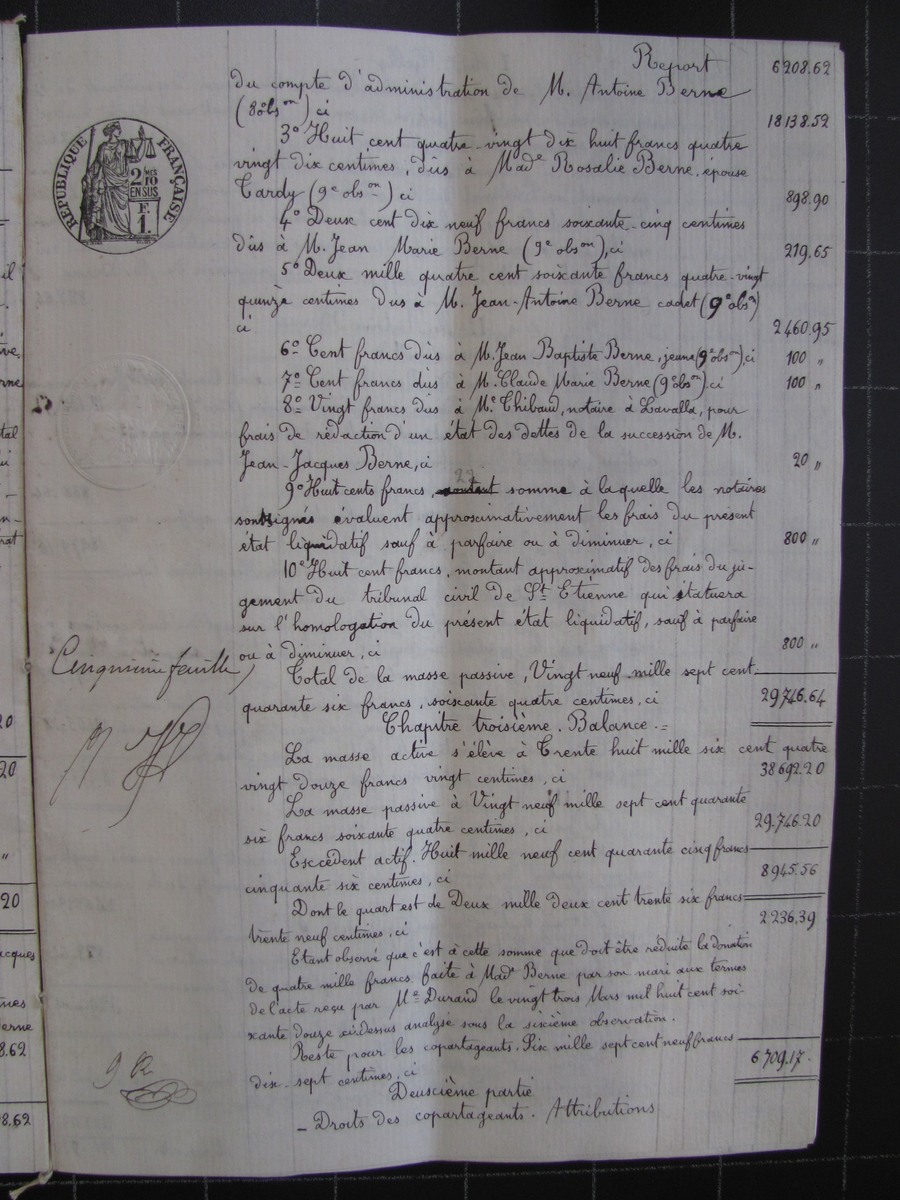 Report 6208.62
du compte d'administration de M. Antoine Berne
(8e obs.on) ci 18138.52
3o Huit cent quatre-vingt dix huit francs quatre
vingt dix centimes, dûs à Made Rosalie Berne, épouse
Tardy (9e obs.on) ci 898.90
4o Deux cent dix neuf francs soixante-cinq centimes
dûs à M. Jean Marie Berne (9e obs.on), ci 219.65
5o Deux mille quatre cent soixante francs quatre-vingt
quinze centimes dus à M. Jean-Antoine Berne cadet (9e obs.on)
ci 2460.95
6o Cent francs dûs à M. Jean Baptiste Berne, jeune (9e obs.on), ci 100 „
7o Cent francs dûs à M. Claude Marie Berne (9e obs.on) ci 100 „
8o Vingt francs dûs à Me Thibaud, notaire à Lavalla, pour
frais de rédaction d'un état des dettes de la succession de M.
Jean-Jacques Berne, ci 20 „
9o Huit cents francs, somme à laquelle les notaires
soussignés évaluent approximativement les frais du présent
état liquidatif sauf à parfaire ou à diminuer, ci 800 „
10e Huit cent francs, montant approximatif des frais du ju-
gement du tribunal civil de St Etienne qui statuera
sur l'homologation du présent état liquidatif, sauf à parfaire
ou à diminuer, ci 800 „
Total de la masse passive, Vingt neuf mille sept cent
quarante six francs, soixante quatre centimes, ci 29,746.64
Chapitre troisième. Balance.=
La masse active s'élève à Trente huit mille six cent quatre
vingt douze francs vingt centimes, ci 38692.20
La masse passive à Vingt neuf mille sept cent quarante
six francs soixante quatre centimes, ci 29.746.20
Excédent actif. Huit mille neuf cent quarante cinq francs
cinquante six centimes, ci 8945.56
Dont le quart est de Deux mille deux cent trente six francs
trente neuf centimes, ci 2.236,39
Etant observé que c'est à cette somme que doit être réduite la donation
de quatre mille francs faite à Made Berne par son mari aux termes
de l'acte reçu par Me Durand le vingt trois Mars mil huit cent soi-
xante douze cidessus analysé sous la sixième observation.
Reste pour les copartageants. Six mille sept cent neuf francs
dix-sept centimes, ci 6709.17
Deuxième partie
_ Droits des copartageants. Attributions
RÉPUBLIQUE FRANÇAISE
2/10
EN SUS
F.
1.
Cinquième feuille